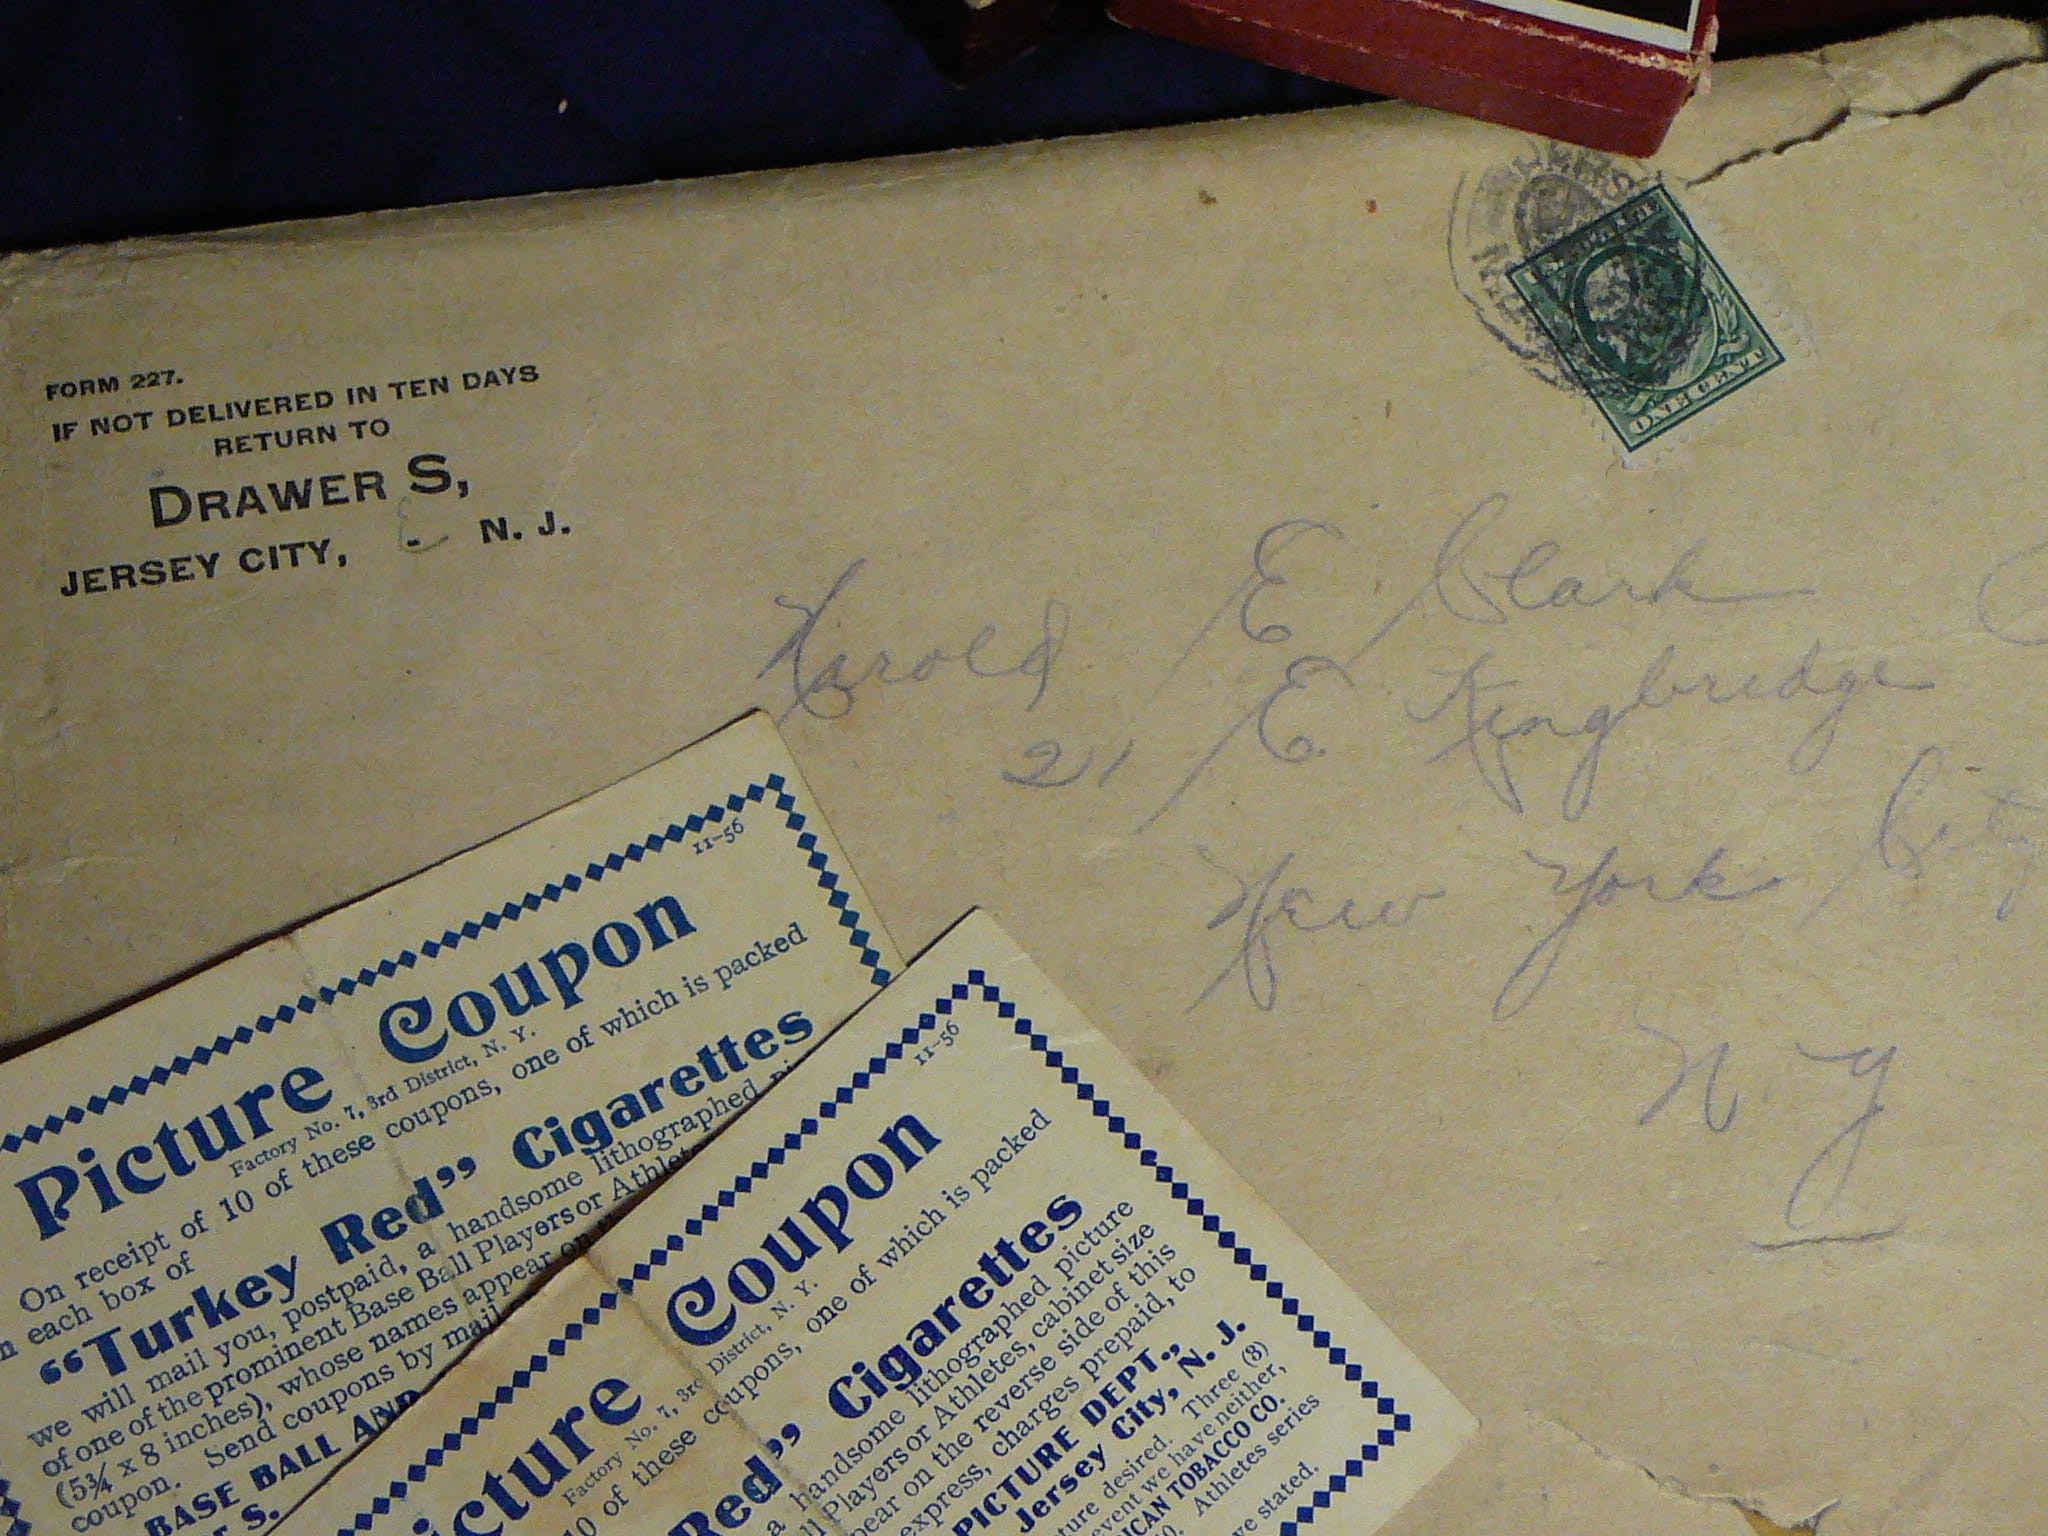 FORM 227.
IF NOT DELIVERED IN TEN DAYS
RETURN TO
DRAWER S,
JERSEY CITY, N. J.
ONE CENT
Harold E Clark
21 E. Kingbridge
New York City
N. Y
11-56
Picture Coupon
Factory No. 7, 3rd District, N. Y.
On receipt of 10 of these coupons, one of which is packed
in each box of
“Turkey Red” Cigarettes
we will mail you, postpaid, a handsome lithographed
of one of the prominent Base Ball Players or Athletes
(5¾ x 8 inches), whose names appear on
coupon. Send coupons by mail
BASE BALL AND
S.
11-56
Picture Coupon
Factory No. 7, 3rd District, N. Y.
10 of these coupons, one of which is packed
Red” Cigarettes
a handsome lithographed picture
Players or Athletes, cabinet size
appear on the reverse side of this
express, charges prepaid, to
PICTURE DEPT.,
Jersey City, N. J.
desired. Three (3)
event we have neither,
AMERICAN TOBACCO CO.
Athletes series
stated.